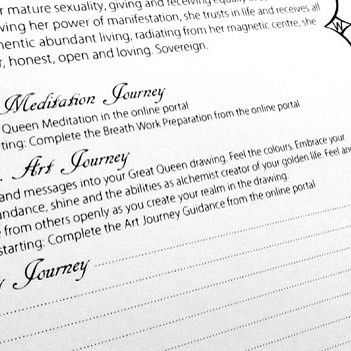 r mature sexuality, giving and receiving equally
ving her power of manifestation, she trusts in life and receives all
hentic abundant living, radiating from her magnetic centre, she
r, honest, open and loving. Sovereign.
Meditation Journey
Queen Meditation in the online portal
ting: Complete the Breath Work Preparation from the online portal
. Art Journey
and messages into your Great Queen drawing. Feel the colours. Embrace your
undance, shine and the abilities as alchemist creator of your golden life. Feel and
from others openly as you create your realm in the drawing.
starting: Complete the Art Journey Guidance from the online portal
y Journey
W